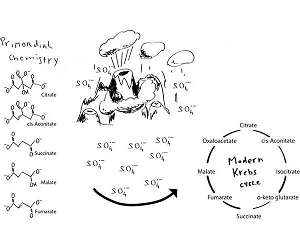 Primordial
Chemistry
Citrate
cis-Aconitate
Succinate
Malate
Fumarate
SO₄⁻⁻
SO₄⁻⁻
SO₄⁻⁻
SO₄⁻⁻
SO₄⁻⁻
SO₄⁻⁻
SO₄⁻⁻
SO₄⁻⁻
SO₄⁻⁻
SO₄⁻⁻
SO₄⁻⁻
SO₄⁻⁻
SO₄⁻⁻
Citrate
Oxaloacetate
cis-Aconitate
Malate
Modern
Krebs
cycle
Isocitrate
Fumarate
α-keto glutarate
Succinate